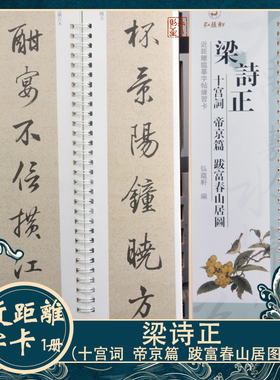 杯景陽鐘曉方
酣宴不信摸江
弘蘊軒
近距離臨摹字帖練習卡
梁詩正
十宫詞 帝京篇 跋富春山居圖
弘蘊軒 編
近距離
字卡 1册
梁诗正
(十宫词 帝京篇 跋富春山居图